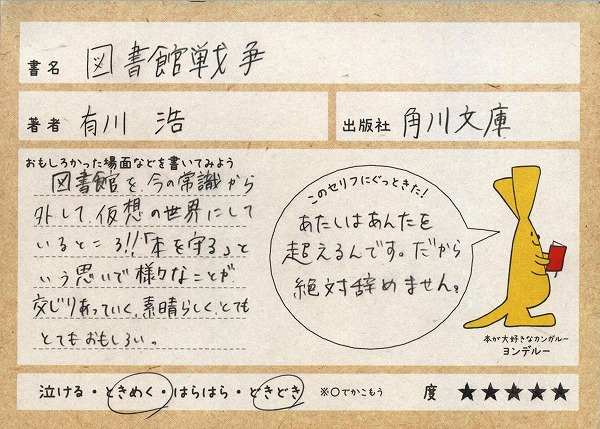 書名 図書館戦争
著者 有川 浩
出版社 角川文庫
おもしろかった場面などを書いてみよう
図書館を、今の常識から
外して、仮想の世界にして
いるところ!!「本を守る」と
いう思いで様々なことが
交じりあっていく、素晴らしく、とても
とてもおもしろい。
このセリフにぐっときた!
あたしはあんたを
超えるんです。だから
絶対辞めません。
本が大好きなカンガルー
ヨンデルー
泣ける・ときめく・はらはら・どきどき ※○でかこもう 度 ★★★★★